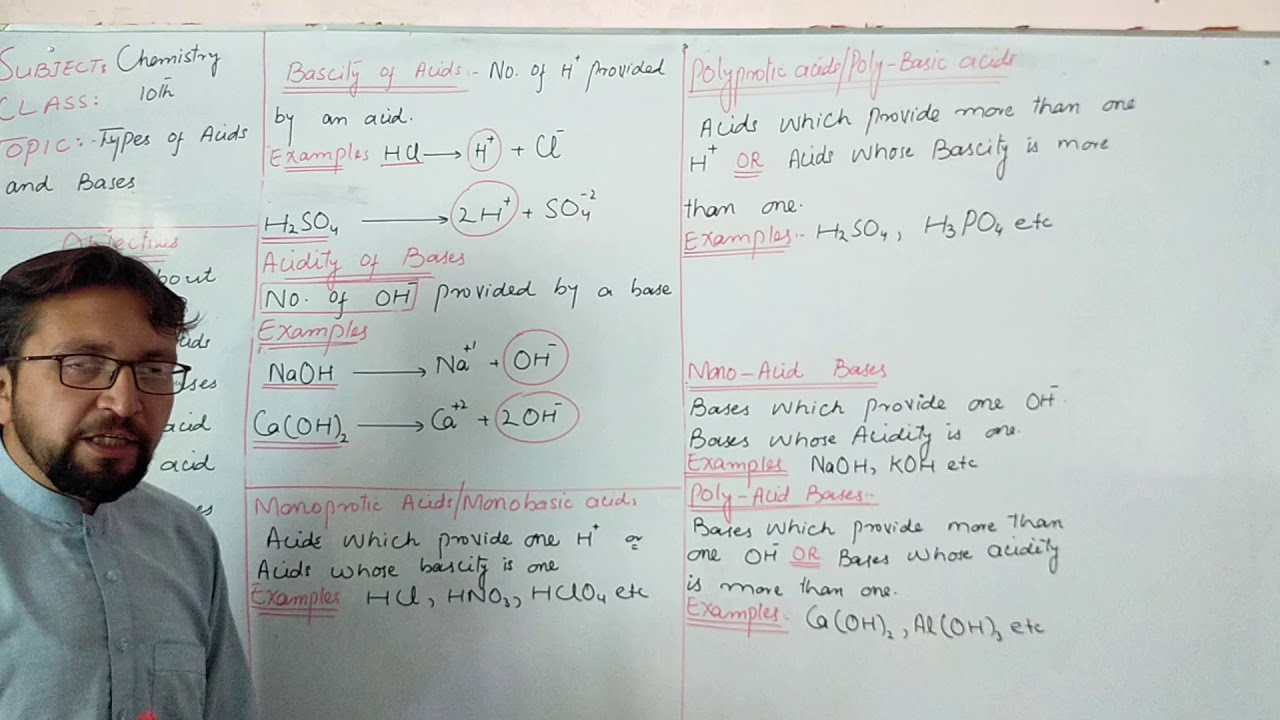 SUBJECT: Chemistry
CLASS: 10th
TOPIC:- Types of Acids
and Bases
Objectives
bout
ids
ses
acid
acid
es
Bascity of Acids:- No. of H⁺ provided
by an acid.
Examples HCl → H⁺ + Cl⁻
H₂SO₄ → 2H⁺ + SO₄⁻²
Acidity of Bases
No. of OH⁻ provided by a base
Examples
NaOH → Na⁺¹ + OH⁻
Ca(OH)₂ → Ca⁺² + 2OH⁻
Monoprotic Acids/Monobasic acids
Acids which provide one H⁺ or
Acids whose bascity is one
Examples HCl, HNO₃, HClO₄ etc
Polyprotic acids/Poly-Basic acids
Acids which provide more than one
H⁺ OR Acids whose Bascity is more
than one.
Examples:- H₂SO₄, H₃PO₄ etc
Mono-Acid Bases
Bases which provide one OH⁻.
Bases whose Acidity is one.
Examples NaOH, KOH etc
Poly-Acid Bases:-
Bases which provide more than
one OH⁻ OR Bases whose acidity
is more than one.
Examples:- Ca(OH)₂, Al(OH)₃ etc